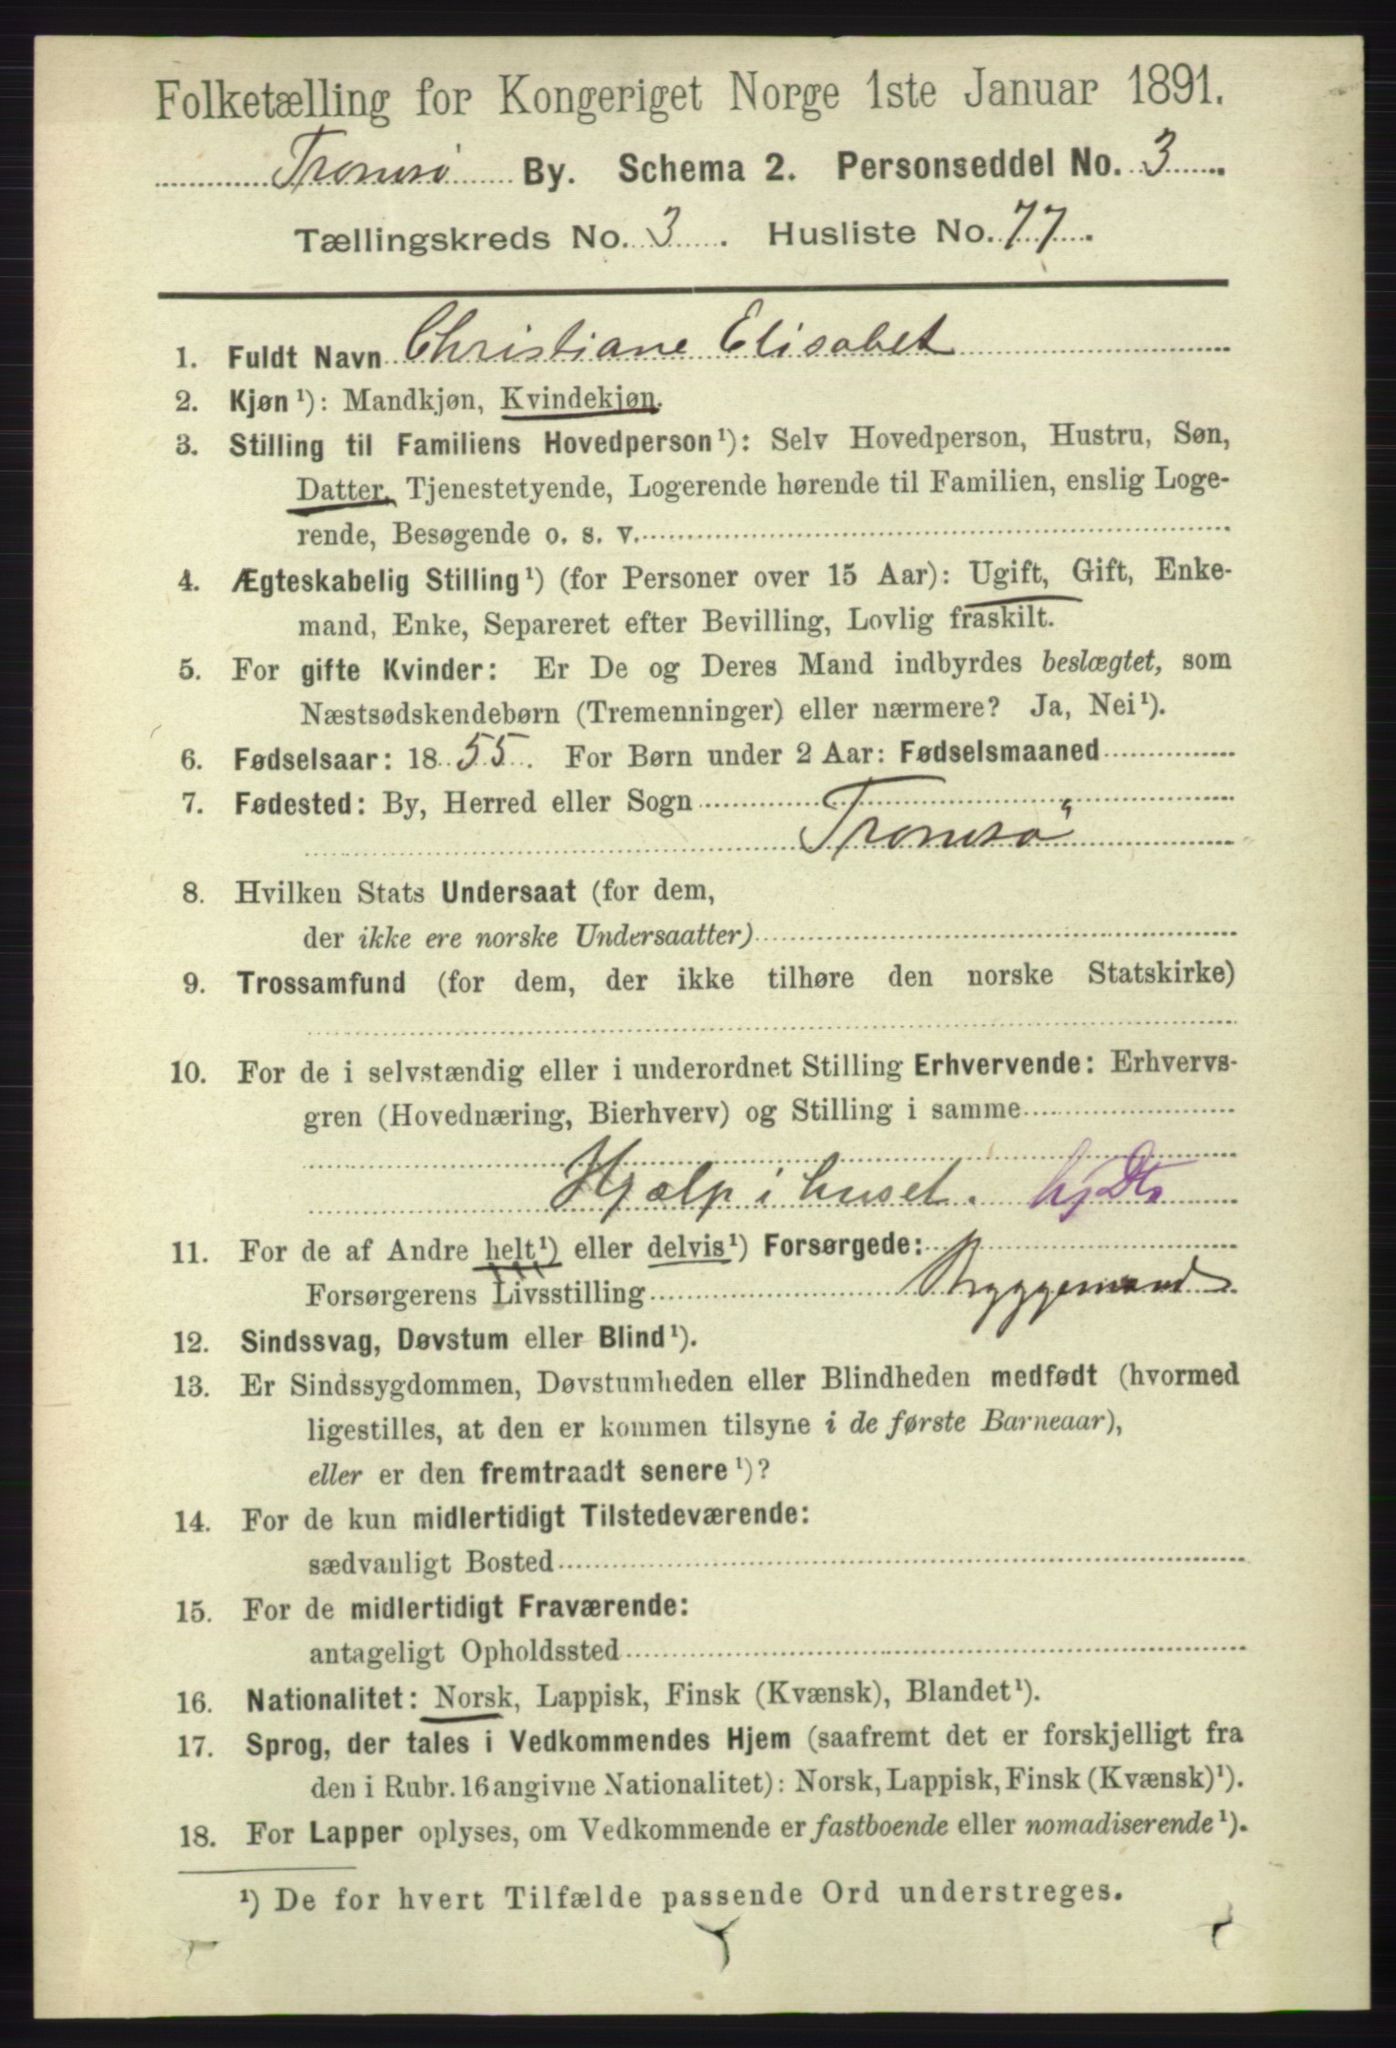 Folketælling for Kongeriget Norge 1ste Januar 1891.
Tromsø By. Schema 2. Personseddel No. 3
Tællingskreds No. 3. Husliste No. 77.
1. Fuldt Navn Christiane Elisabet
2. Kjøn¹): Mandkjøn, Kvindekjøn.
3. Stilling til Familiens Hovedperson¹): Selv Hovedperson, Hustru, Søn,
Datter, Tjenestetyende, Logerende hørende til Familien, enslig Loge-
rende, Besøgende o. s. v.
4. Ægteskabelig Stilling¹) (for Personer over 15 Aar): Ugift, Gift, Enke-
mand, Enke, Separeret efter Bevilling, Lovlig fraskilt.
5. For gifte Kvinder: Er De og Deres Mand indbyrdes beslægtet, som
Næstsødskendebørn (Tremenninger) eller nærmere? Ja, Nei¹).
6. Fødselsaar: 1855. For Børn under 2 Aar: Fødselsmaaned
7. Fødested: By, Herred eller Sogn
Tromsö
8. Hvilken Stats Undersaat (for dem,
der ikke ere norske Undersaatter)
9. Trossamfund (for dem, der ikke tilhøre den norske Statskirke)
10. For de i selvstændig eller i underordnet Stilling Erhvervende: Erhvervs-
gren (Hovednæring, Bierhverv) og Stilling i samme
Hjælp i huset. hj Dtr
11. For de af Andre helt¹) eller delvis¹) Forsørgede:
Forsørgerens Livsstilling Byggemand
12. Sindssvag, Døvstum eller Blind¹).
13. Er Sindssygdommen, Døvstumheden eller Blindheden medfødt (hvormed
ligestilles, at den er kommen tilsyne i de første Barneaar),
eller er den fremtraadt senere¹)?
14. For de kun midlertidigt Tilstedeværende:
sædvanligt Bosted
15. For de midlertidigt Fraværende:
antageligt Opholdssted
16. Nationalitet: Norsk, Lappisk, Finsk (Kvænsk), Blandet¹).
17. Sprog, der tales i Vedkommendes Hjem (saafremt det er forskjelligt fra
den i Rubr. 16 angivne Nationalitet): Norsk, Lappisk, Finsk (Kvænsk)¹).
18. For Lapper oplyses, om Vedkommende er fastboende eller nomadiserende¹).
¹) De for hvert Tilfælde passende Ord understreges.